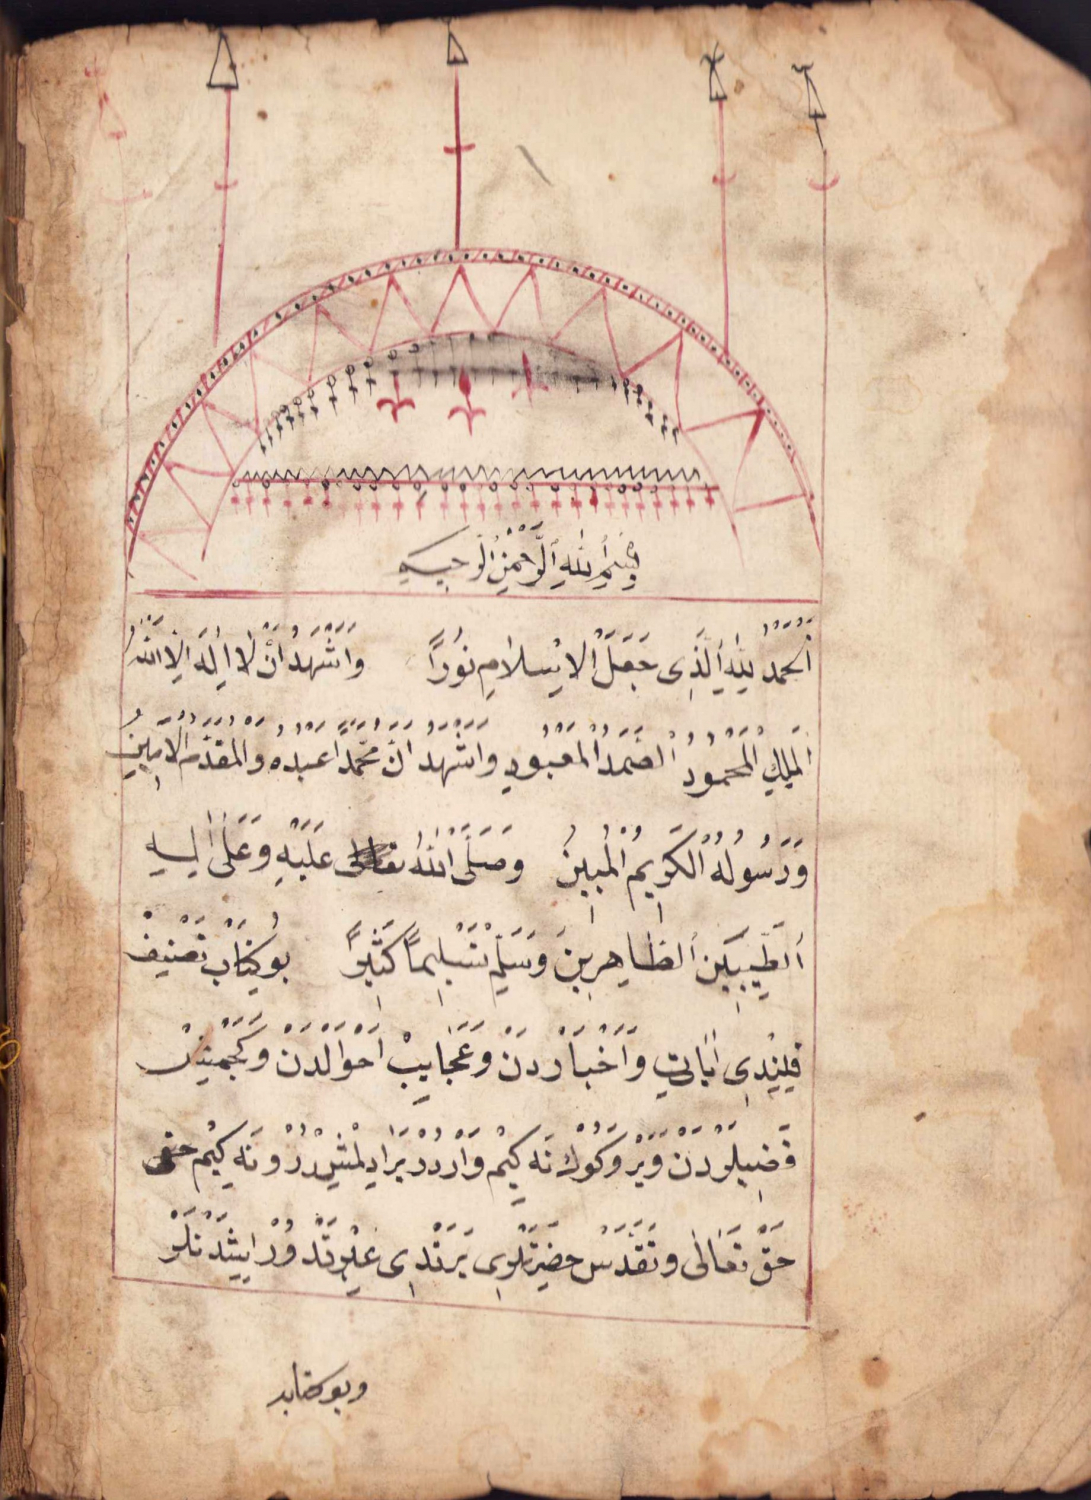 بِسْمِ اللّٰهِ الرَّحْمٰنِ الرَّحِيمِ
اَلْحَمْدُ لِلّٰهِ الَّذِى جَعَلَ الْاِسْلَامِ نُورًا وَاَشْهَدُ اَنَّ لَا اِلَهَ اِلَّا اللّٰهُ
اَلْمَلِكِ الْمَحْمُودُ الصَّمَدُ الْمَعْبُودِ وَاَشْهَدُ اَنَّ مُحَمَّدًا عَبْدُهُ وَالْمُقَدَّمُ الْاَمِينُ
وَرَسُولُهُ الْكَرِيمُ الْمُبِينُ وَصَلَّى اللّٰهُ تعالى عَلَيْهِ وَعَلَى اٰلِهِ
اَلطَّيِّبِينَ الطَّاهِرِينَ وَسَلِّمْ تَسْلِيمًا كَثِيرًا بُو كِتَابْ تَصْنِيفْ
قِيلِنْدِى اٰيَاتِ وَاَخْبَارْدَنْ وَعَجَايِبْ اَحْوَالْدَنْ وَ
فَضِيلَرْدَنْ وَيَرْ وَكُوكْ نَه كِيمْ وَارْدُرْ يَرَادِلْمِشْدُرْ وَنَه كِيمْ حق
حَقّ تَعَالٰى وَتَقَدَّسْ حَضْرَتْلَرِى يَرَتْدِى
وبو كتابد